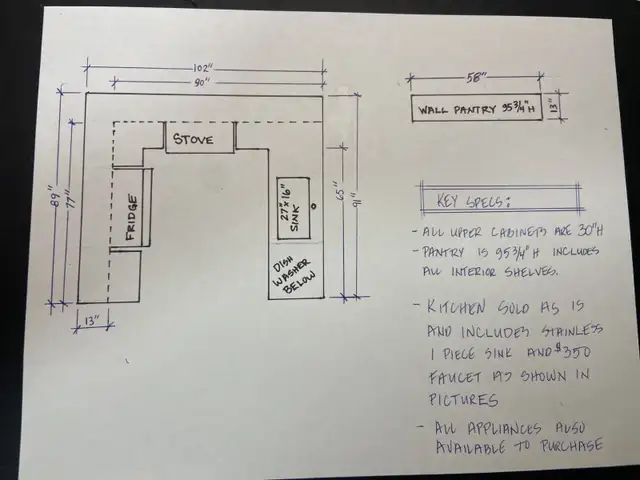 102"
90"
58"
WALL PANTRY 95 3/4" H
13"
STOVE
89"
77"
FRIDGE
27"x16"
SINK
65"
91"
DISH
WASHER
BELOW
13"
KEY SPECS:
- ALL UPPER CABINETS ARE 30"H
- PANTRY IS 95 3/4" H INCLUDES
ALL INTERIOR SHELVES.
- KITCHEN SOLD AS IS
AND INCLUDES STAINLESS
1 PIECE SINK AND $350
FAUCET AS SHOWN IN
PICTURES
- ALL APPLIANCES ALSO
AVAILABLE TO PURCHASE